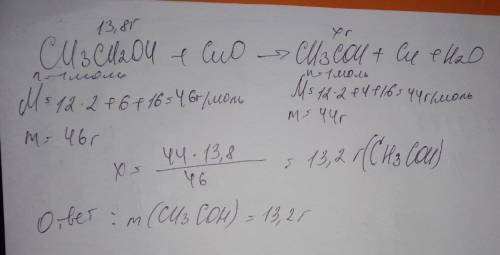 13,8г xг
CH3CH2OH + CuO → CH3COH + Cu + H2O
n=1моль n=1моль
M=12·2+6+16=46г/моль M=12·2+4+16=44г/моль
m=46г m=44г
x = 44·13,8 / 46 = 13,2 г(CH3COH)
Ответ: m(CH3COH)=13,2г